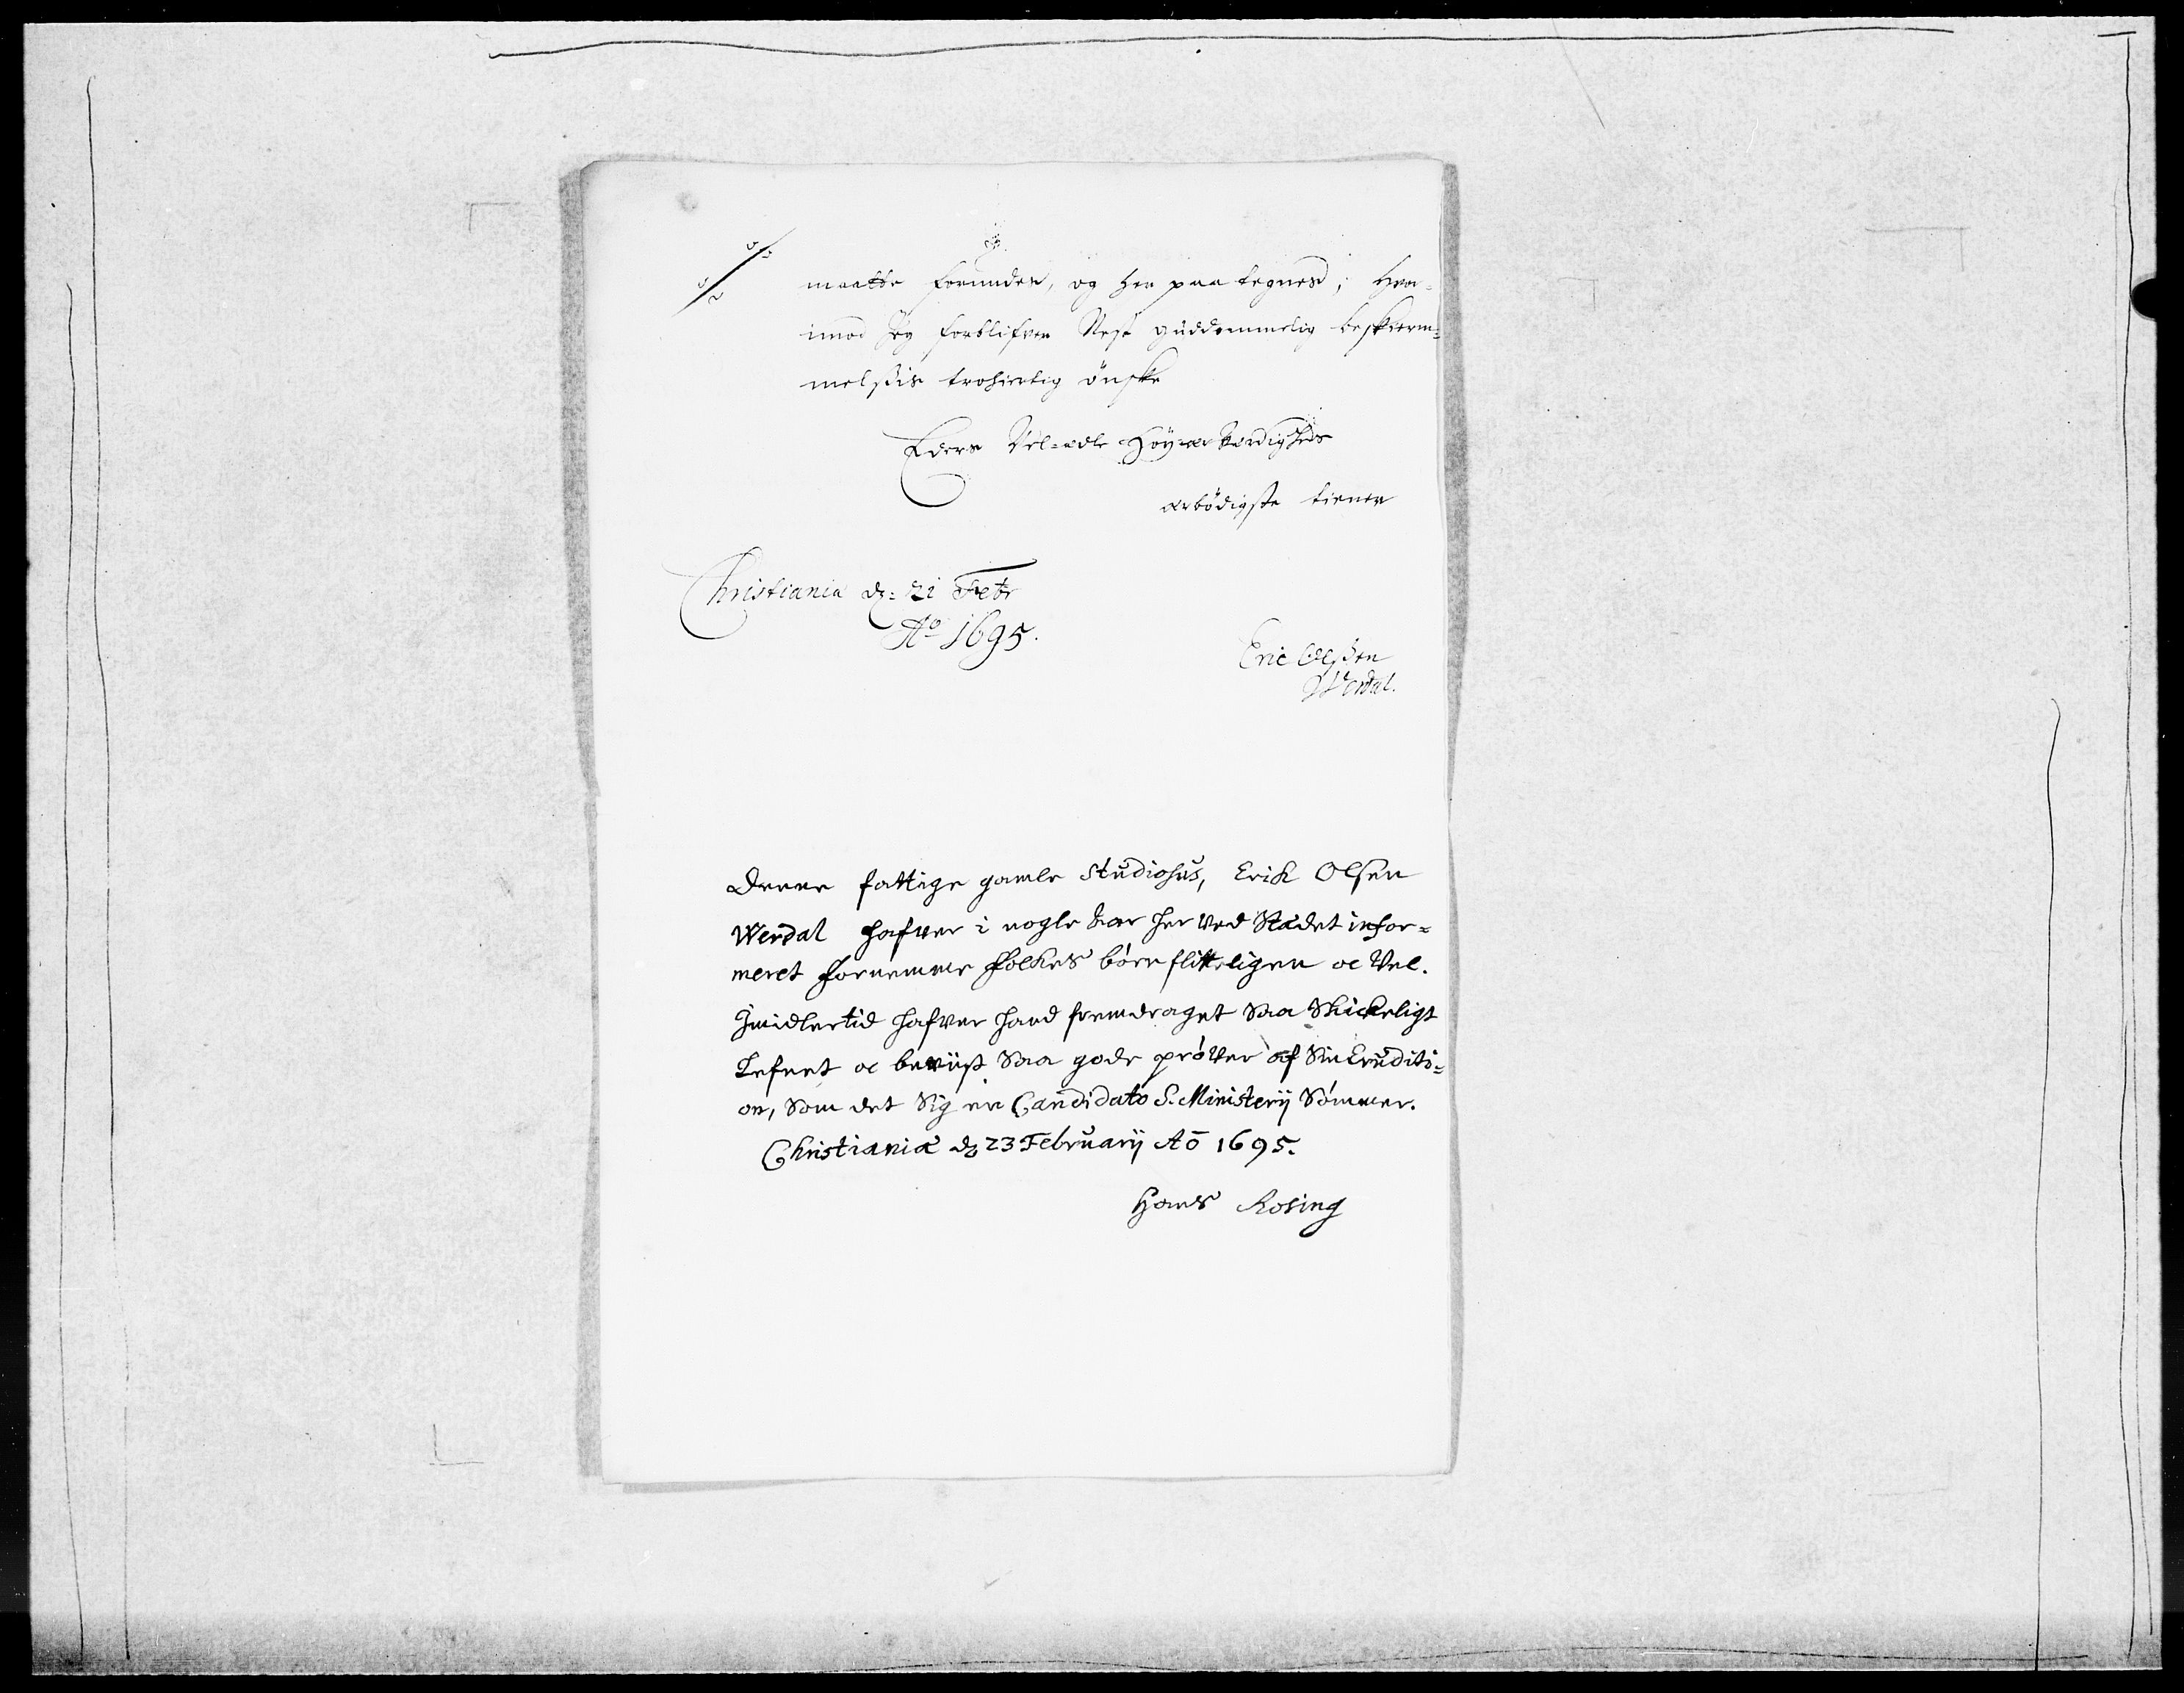 maatte forundes, og her paa tegnes; Hvor-
imod Jeg forblifver Nest guddommelig beskierm-
melsis trohiertig ønske
Eders Vel-ædle Høyærværdigheds
ærbödigste tiener
Christiania d: 21 Febr
Ao 1695.
Eric Olssen
Werdal.
Denne fattige gamle Studiosus, Erik Olsen
Werdal hafver i nogle Aar her ved Stædet infor=
meret fornemme Folkes børn flitteligen oc Vel.
Imidlertid hafver hand fremdraget Saa Skickeligt
Lefnet oc beviist Saa gode prøver af Sin Eruditi=
on, Som det Sig en Candidato S. Ministerij Sømmer.
Christianiæ d 23 Februarij Aō 1695.
Hans Rosing